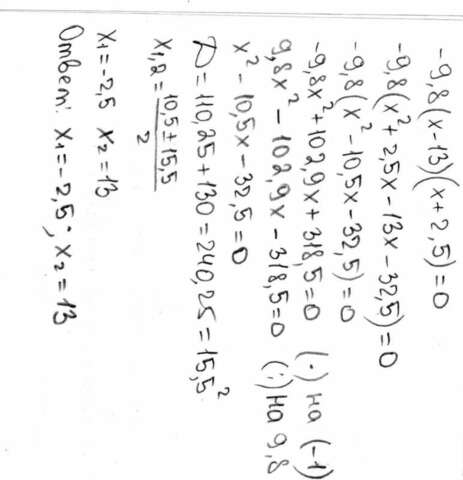 -9,8(x-13)(x+2,5)=0
-9,8(x²+2,5x-13x-32,5)=0
-9,8(x²-10,5x-32,5)=0
-9,8x²+102,9x+318,5=0 (·) на (-1)
9,8x²-102,9x-318,5=0 (:) на 9,8
x²-10,5x-32,5=0
D=110,25+130=240,25=15,5²
x₁,₂=(10,5±15,5)/2
x₁=-2,5 x₂=13
Ответ: x₁=-2,5; x₂=13